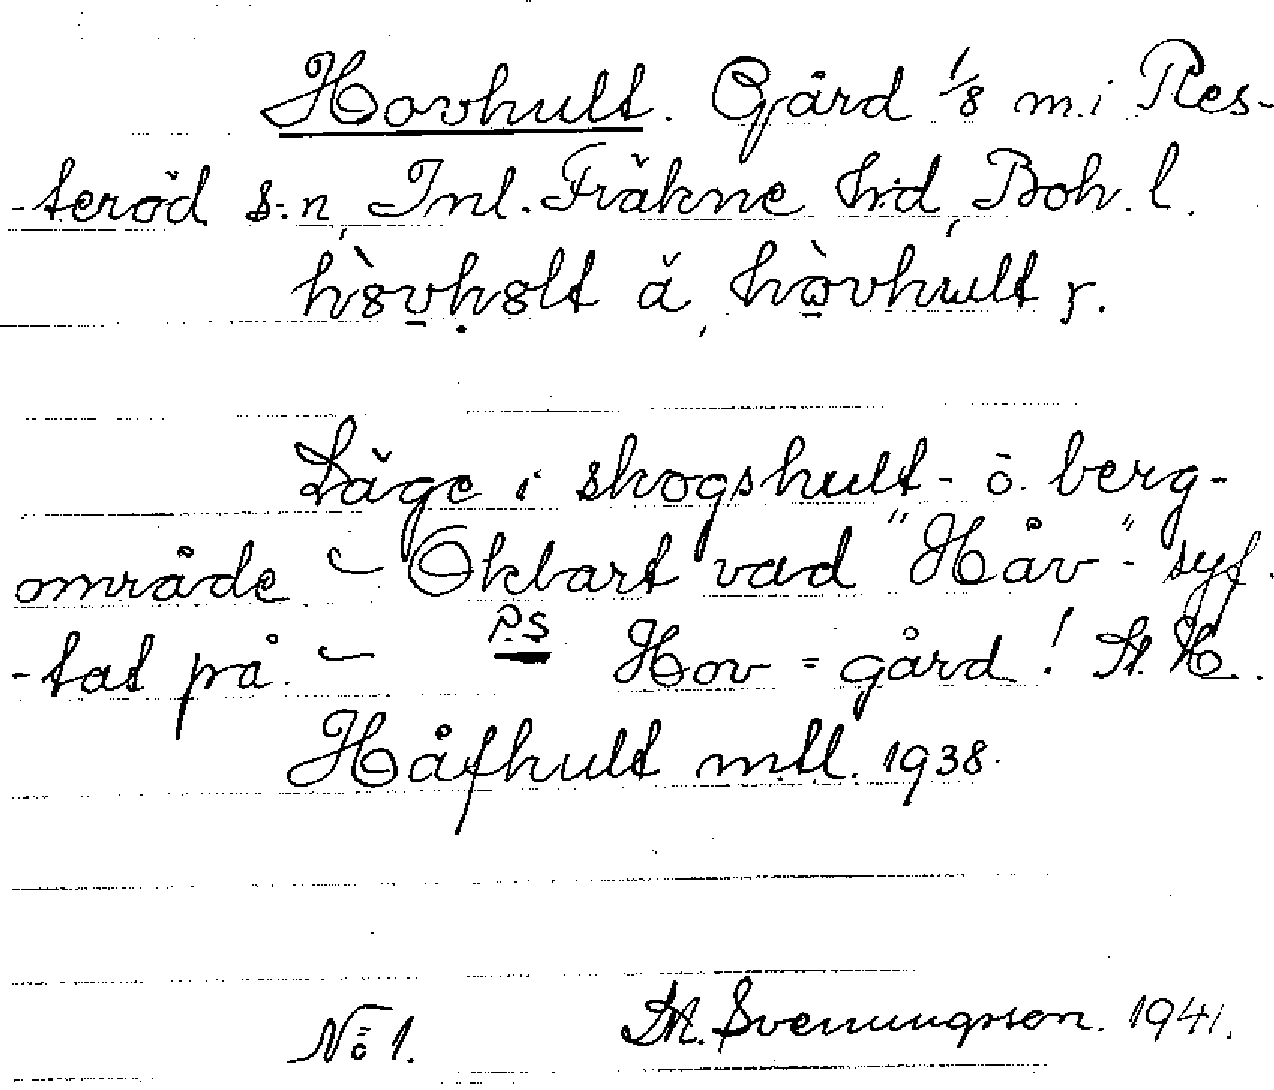 Hovhult. Gård 1/8 m. i Res-
-teröd s:n, Inl. Fräkne hrd, Boh. l.
hòvhult r.
Läge i skogshult- o. berg-
område — Okbart vad "Håv"- syf-
-tat på. — PS Hov = gård!
Håfhult mtl. 1938.
No 1. Svenungsson. 1941.